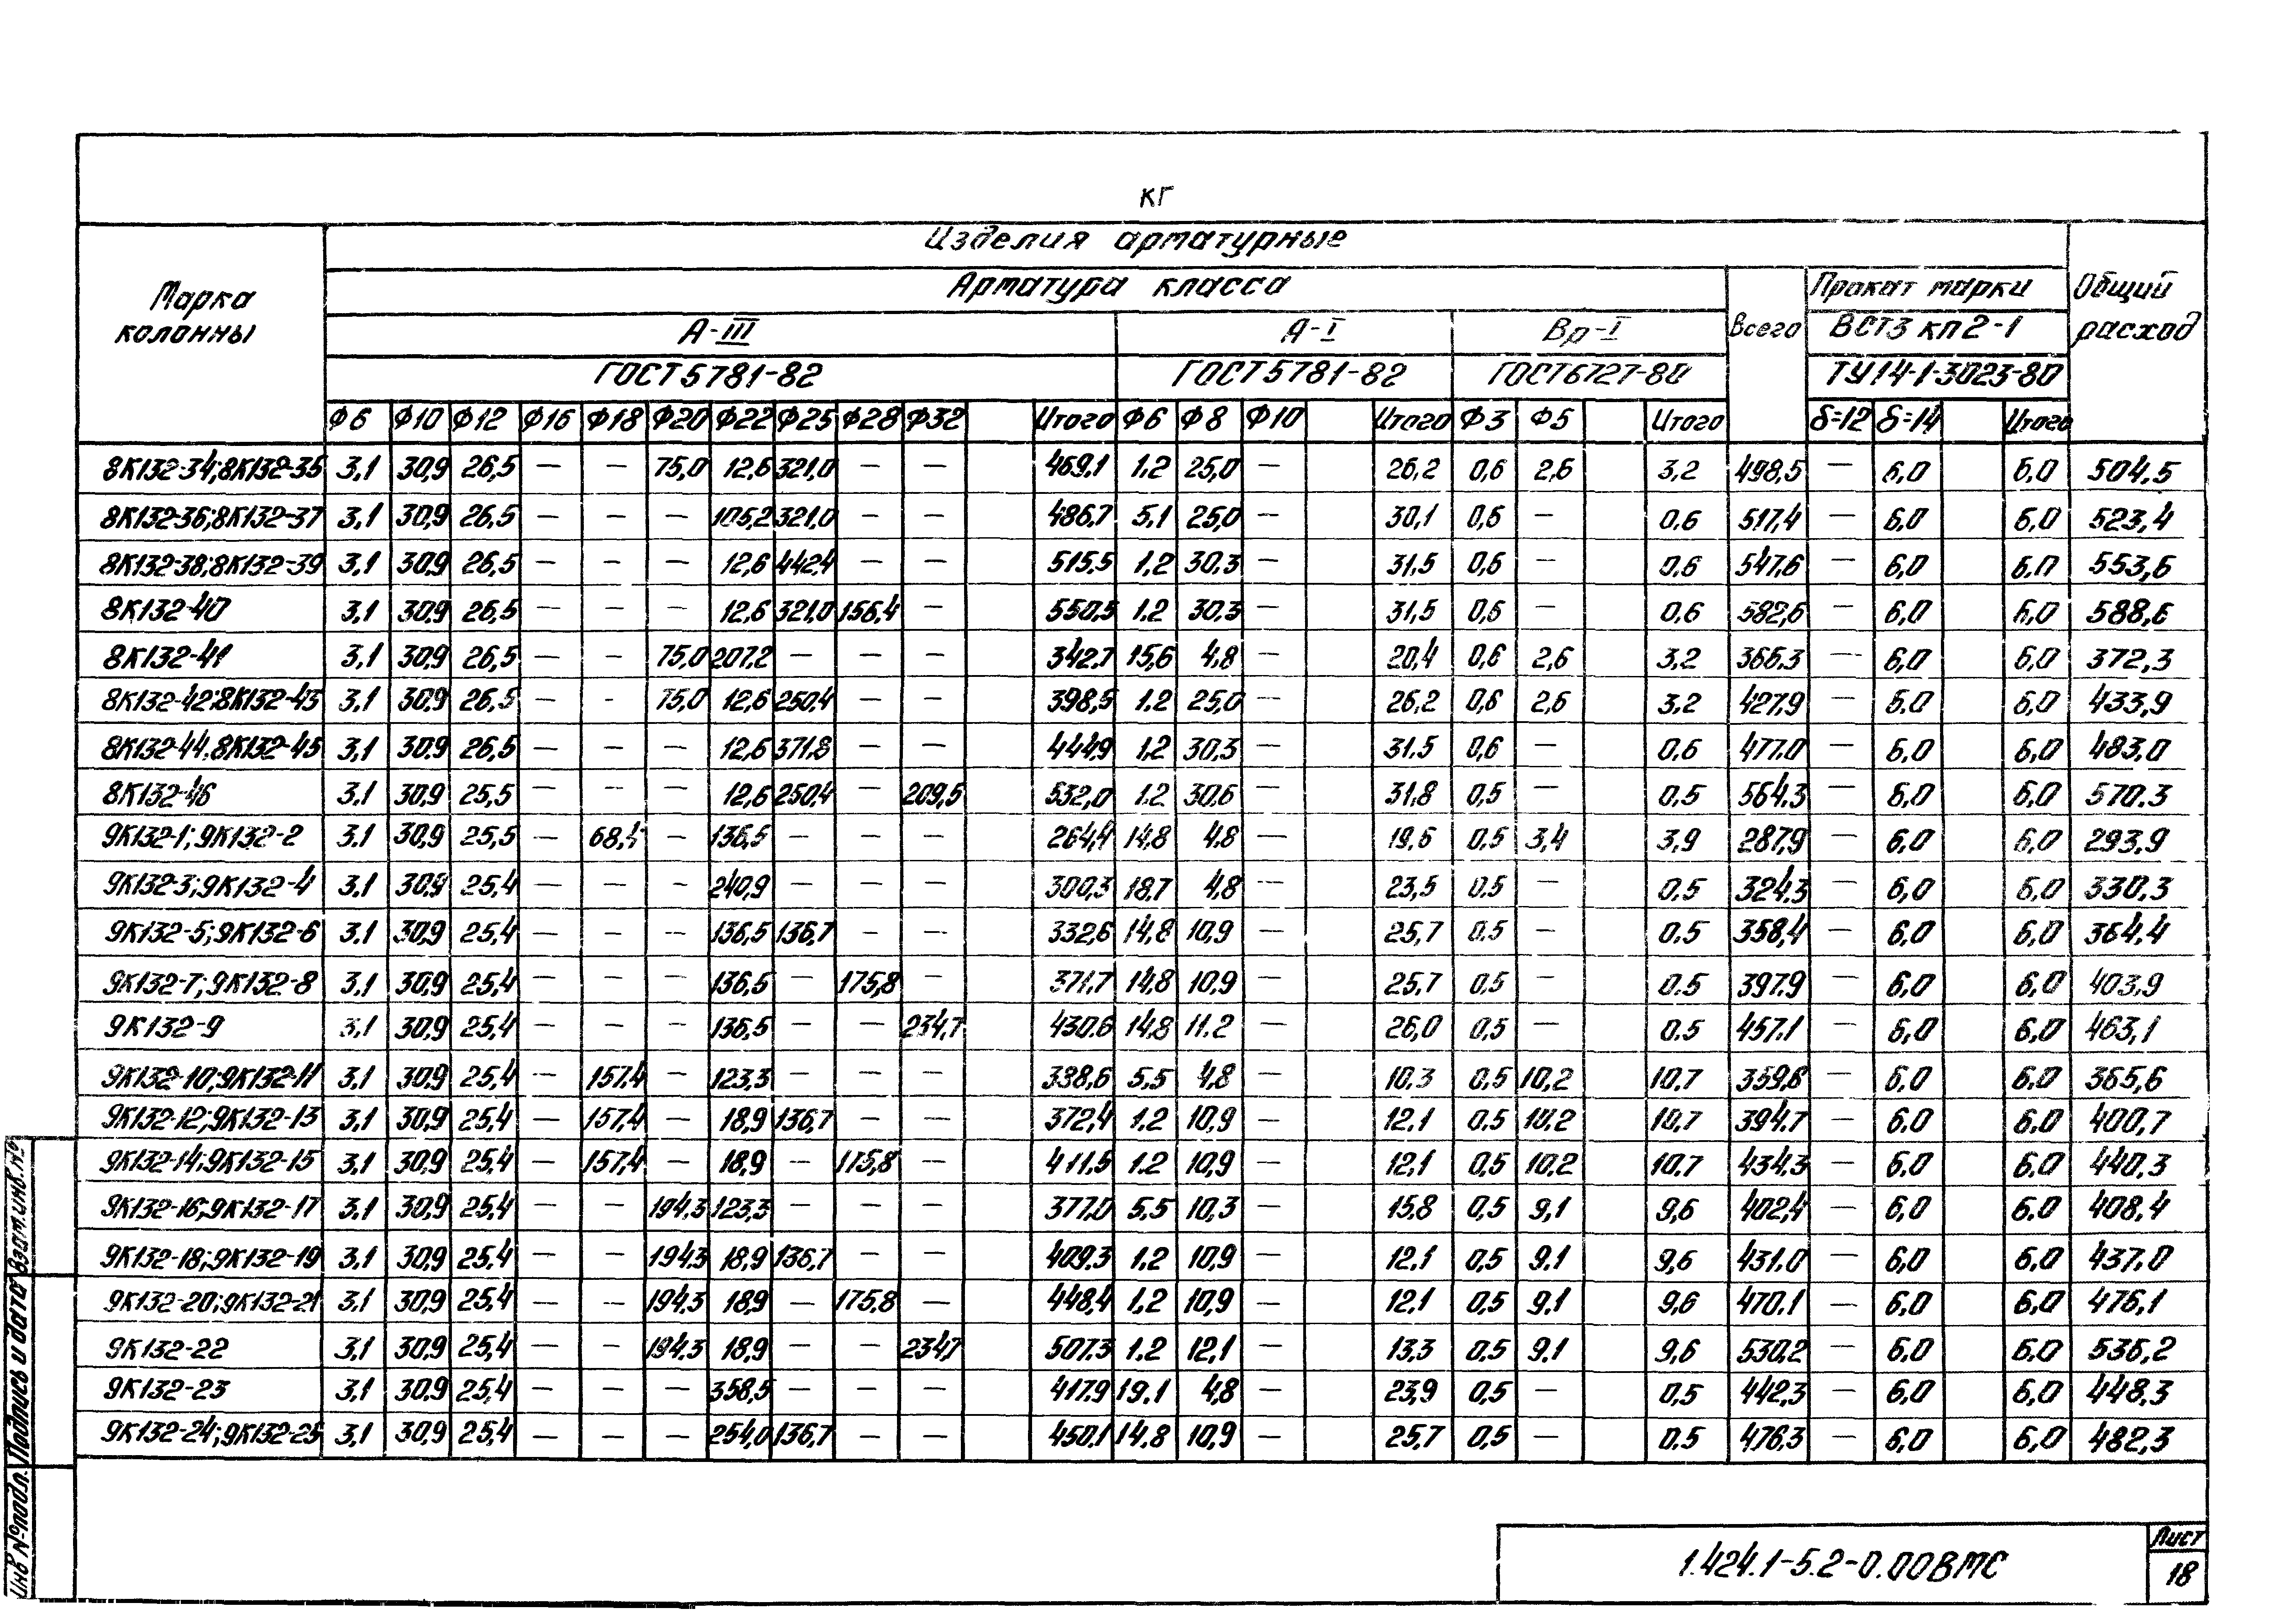 кг
Изделия арматурные
Марка колонны
Арматура класса
Всего
Прокат марки
Общий расход
А-III
А-I
Вр-I
ВСт3 кп2-1
ГОСТ 5781-82
ГОСТ 5781-82
ГОСТ 6727-80
ТУ 14-1-3023-80
Ф6 Ф10 Ф12 Ф16 Ф18 Ф20 Ф22 Ф25 Ф28 Ф32 Итого Ф6 Ф8 Ф10 Итого Ф3 Ф5 Итого δ=12 δ=14 Итого
8К132-34;8К132-35 3,1 30,9 26,5 — — 75,0 12,6 321,0 — — 469,1 1,2 25,0 — 26,2 0,6 2,6 3,2 498,5 — 6,0 6,0 504,5
8К132-36;8К132-37 3,1 30,9 26,5 — — — 105,2 321,0 — — 486,7 5,1 25,0 — 30,1 0,6 — 0,6 517,4 — 6,0 6,0 523,4
8К132-38;8К132-39 3,1 30,9 26,5 — — — 12,6 442,4 — — 515,5 1,2 30,3 — 31,5 0,6 — 0,6 547,6 — 6,0 6,0 553,6
8К132-40 3,1 30,9 26,5 — — — 12,6 321,0 156,4 — 550,5 1,2 30,3 — 31,5 0,6 — 0,6 582,6 — 6,0 6,0 588,6
8К132-41 3,1 30,9 26,5 — — 75,0 207,2 — — — 342,7 15,6 4,8 — 20,4 0,6 2,6 3,2 366,3 — 6,0 6,0 372,3
8К132-42;8К132-43 3,1 30,9 26,5 — - 75,0 12,6 250,4 — — 398,5 1,2 25,0 — 26,2 0,6 2,6 3,2 427,9 — 6,0 6,0 433,9
8К132-44;8К132-45 3,1 30,9 26,5 — — — 12,6 371,8 — — 444,9 1,2 30,3 — 31,5 0,6 — 0,6 477,0 — 6,0 6,0 483,0
8К132-46 3,1 30,9 25,5 — — — 12,6 250,4 — 209,5 532,0 1,2 30,6 — 31,8 0,5 — 0,5 564,3 — 6,0 6,0 570,3
9К132-1;9К132-2 3,1 30,9 25,5 — 68,4 — 136,5 — — — 264,4 14,8 4,8 — 19,6 0,5 3,4 3,9 287,9 — 6,0 6,0 293,9
9К132-3;9К132-4 3,1 30,9 25,4 — — - 240,9 — — — 300,3 18,7 4,8 — 23,5 0,5 — 0,5 324,3 — 6,0 6,0 330,3
9К132-5;9К132-6 3,1 30,9 25,4 — — — 136,5 136,7 — — 332,6 14,8 10,9 — 25,7 0,5 — 0,5 358,4 — 6,0 6,0 364,4
9К132-7;9К132-8 3,1 30,9 25,4 — — — 136,5 — 175,8 — 371,7 14,8 10,9 — 25,7 0,5 — 0,5 397,9 — 6,0 6,0 403,9
9К132-9 3,1 30,9 25,4 — — — 136,5 — — 234,7 430,6 14,8 11,2 — 26,0 0,5 — 0,5 457,1 — 6,0 6,0 463,1
9К132-10;9К132-11 3,1 30,9 25,4 — 157,4 — 123,3 — — — 338,6 5,5 4,8 — 10,3 0,5 10,2 10,7 359,6 — 6,0 6,0 365,6
9К132-12;9К132-13 3,1 30,9 25,4 — 157,4 — 18,9 136,7 — — 372,4 1,2 10,9 — 12,1 0,5 10,2 10,7 394,7 — 6,0 6,0 400,7
9К132-14;9К132-15 3,1 30,9 25,4 — 157,4 — 18,9 — 175,8 — 411,5 1,2 10,9 — 12,1 0,5 10,2 10,7 434,3 — 6,0 6,0 440,3
9К132-16;9К132-17 3,1 30,9 25,4 — — 194,3 123,3 — — — 377,0 5,5 10,3 — 15,8 0,5 9,1 9,6 402,4 — 6,0 6,0 408,4
9К132-18;9К132-19 3,1 30,9 25,4 — — 194,3 18,9 136,7 — — 409,3 1,2 10,9 — 12,1 0,5 9,1 9,6 431,0 — 6,0 6,0 437,0
9К132-20;9К132-21 3,1 30,9 25,4 — — 194,3 18,9 — 175,8 — 448,4 1,2 10,9 — 12,1 0,5 9,1 9,6 470,1 — 6,0 6,0 476,1
9К132-22 3,1 30,9 25,4 — — 194,3 18,9 — — 234,7 507,3 1,2 12,1 — 13,3 0,5 9,1 9,6 530,2 — 6,0 6,0 536,2
9К132-23 3,1 30,9 25,4 — — — 358,5 — — — 417,9 19,1 4,8 — 23,9 0,5 — 0,5 442,3 — 6,0 6,0 448,3
9К132-24;9К132-25 3,1 30,9 25,4 — — — 254,0 136,7 — — 450,1 14,8 10,9 — 25,7 0,5 — 0,5 476,3 — 6,0 6,0 482,3
Взам.инв.№
Подпись и дата
Инв № подл.
1.424.1-5.2-0.00ВМС
Лист
18